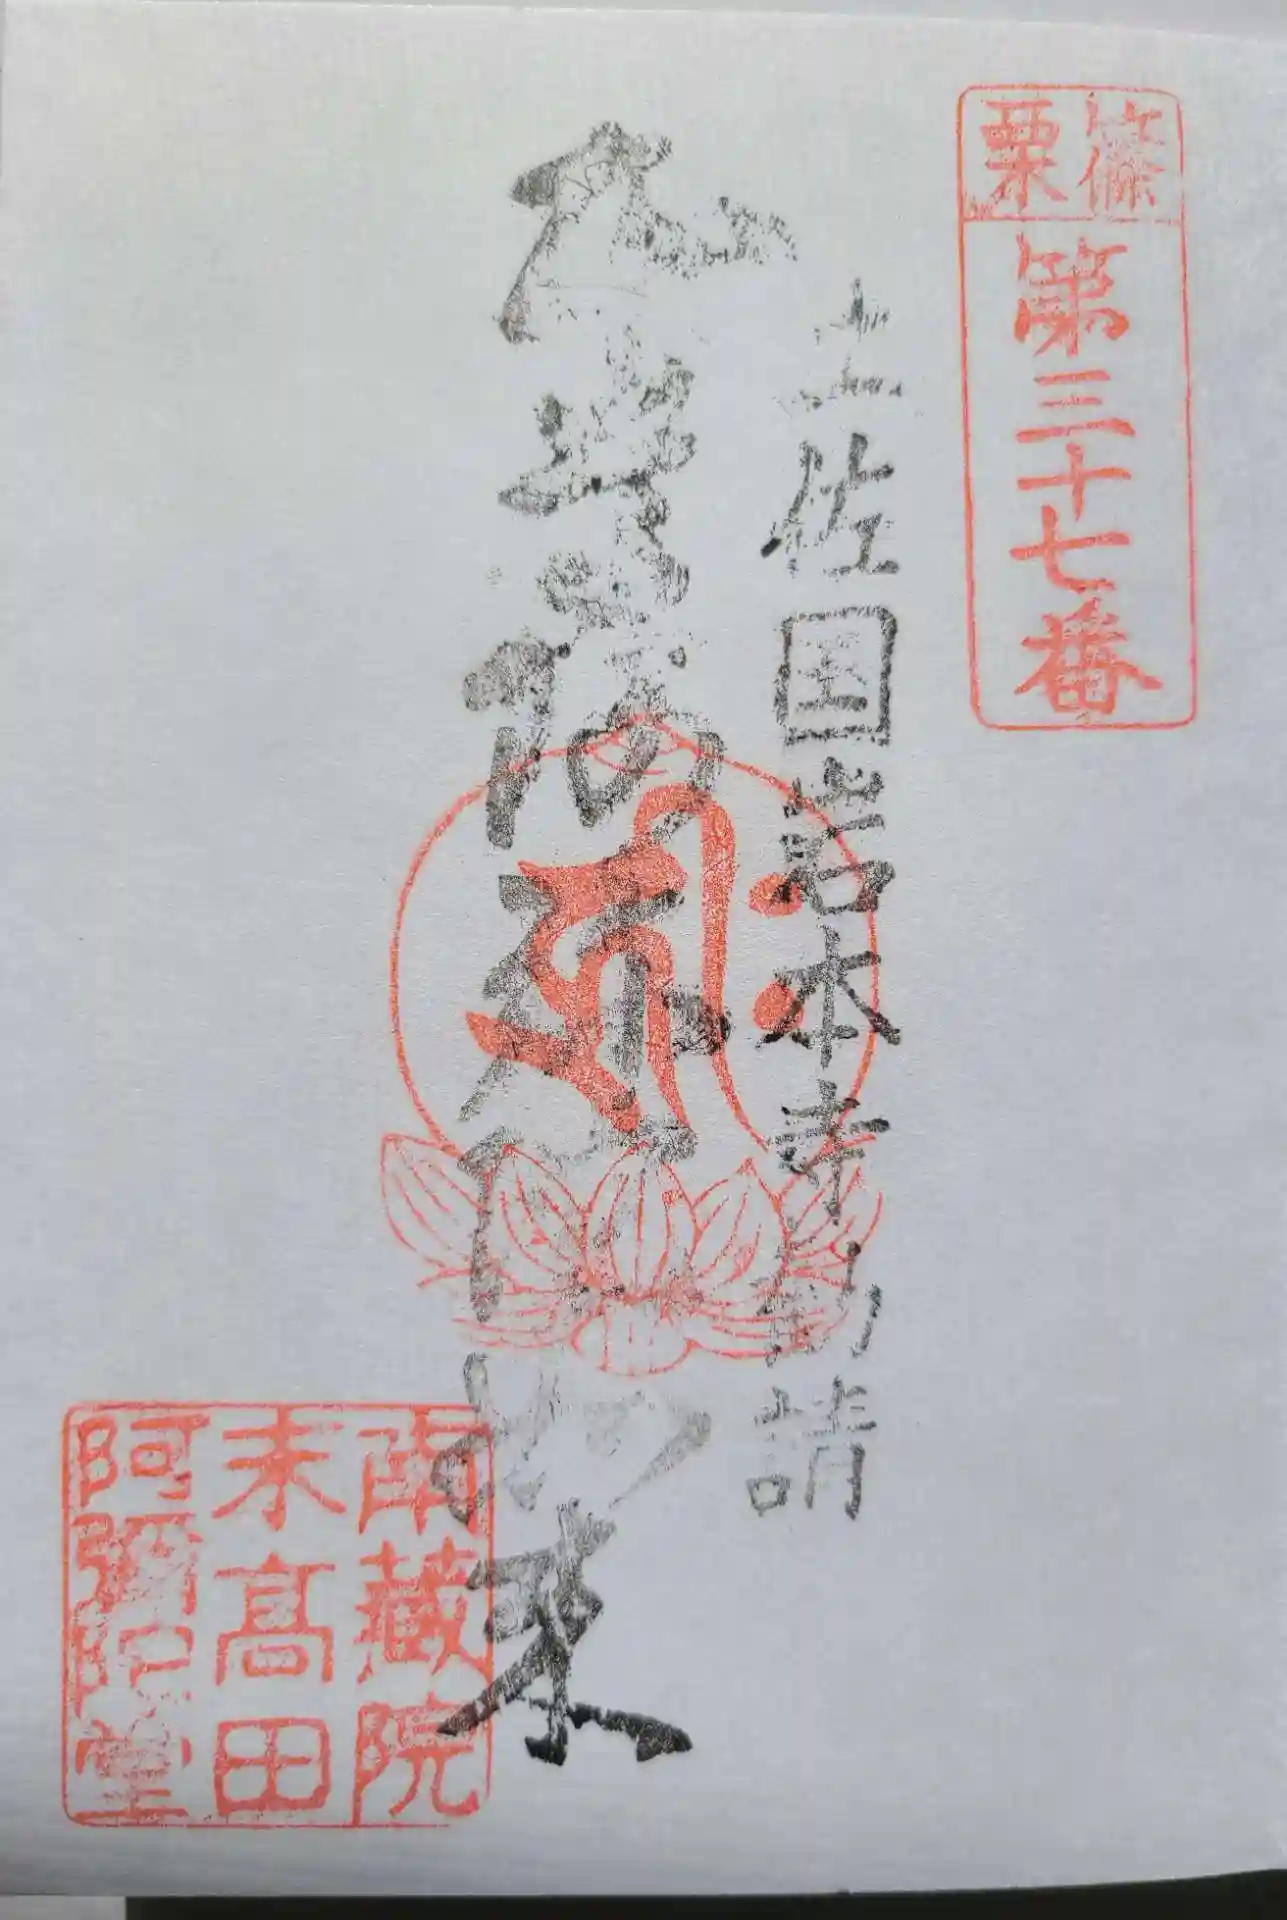 篠栗
第三十七番
土佐国岩本寺勧請
本尊阿弥陀如来
𑖮𑖿𑖨𑖱𑖾
南藏院
末高田
阿彌陀堂